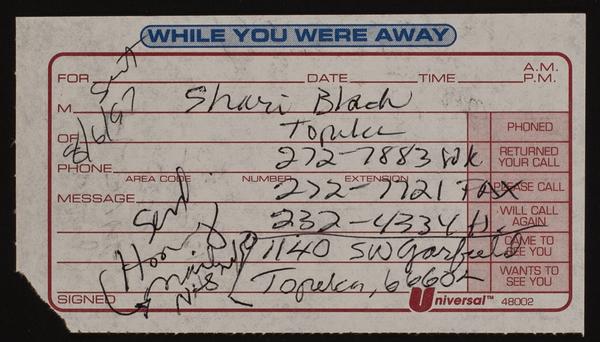 WHILE YOU WERE AWAY
FOR DATE TIME A.M. P.M.
Sent
8/6/97
M Shari Black
OF Topeka
PHONED
272-7883 wk
RETURNED YOUR CALL
PHONE
AREA CODE NUMBER EXTENSION
272-7721 FAX
PLEASE CALL
MESSAGE
Send
232-4334 H.
WILL CALL AGAIN
1140 SW Garfield
CAME TO SEE YOU
Topeka, 66604
WANTS TO SEE YOU
SIGNED
Universal™ 48002